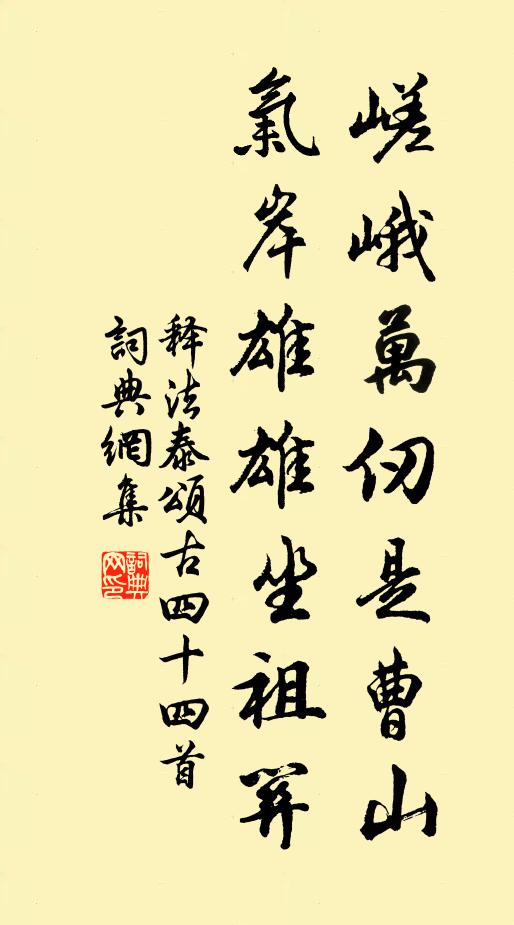 嵯峨萬仞是曹山
氣岸雄雄坐祖關
释法泰頌古四十四首
詞典網集
詞典网印